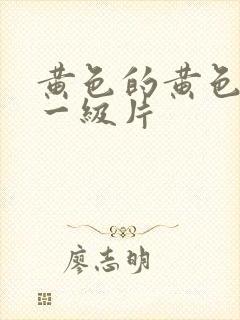 黄色的黄色
一级片
廖志明